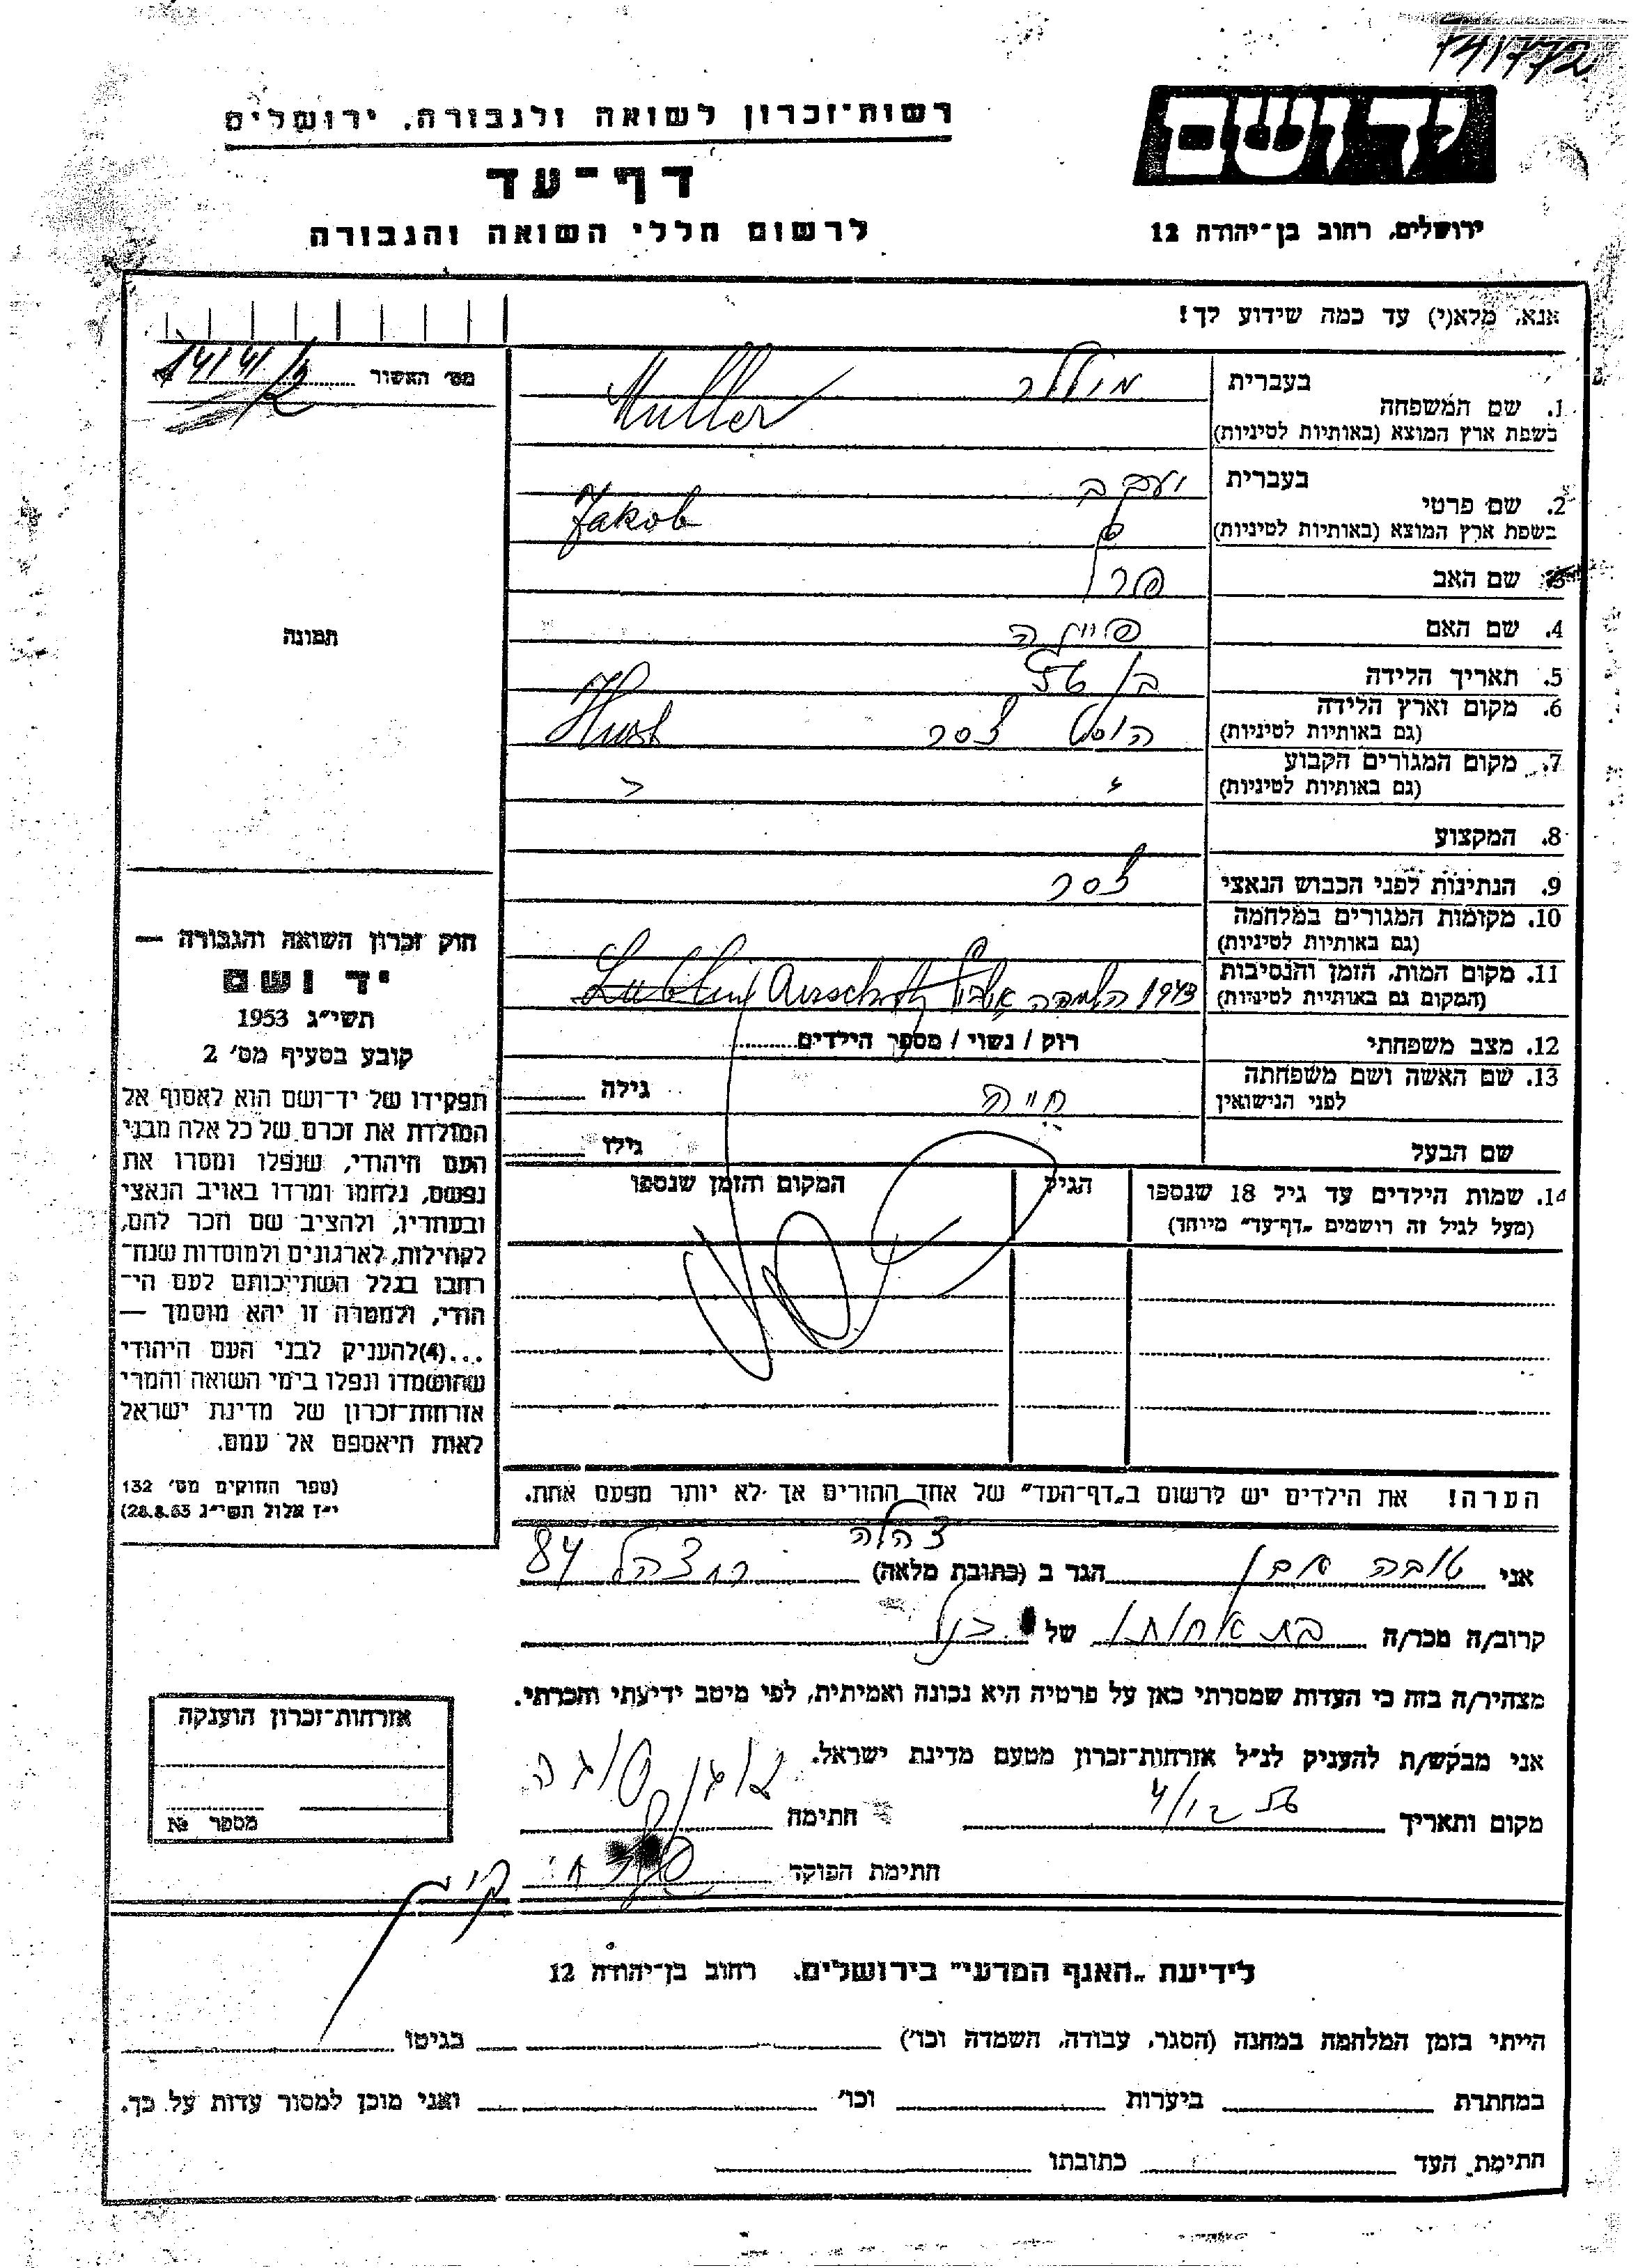 יד ושם
ירושלים. רחוב בן־יהודה 12
רשות־זכרון לשואה ולגבורה. ירושלים
דף־עד
לרשום חללי השואה והגבורה
אנא, מלא(י) עד כמה שידוע לך!
1. שם המשפחה
בעברית מילר
בשפת ארץ המוצא (באותיות לטיניות) Muller
2. שם פרטי
בעברית יעקב
בשפת ארץ המוצא (באותיות לטיניות) Jakob
3. שם האב
4. שם האם
5. תאריך הלידה
6. מקום וארץ הלידה
(גם באותיות לטיניות) הוסט צסר Hust
7. מקום המגורים הקבוע
(גם באותיות לטיניות)
8. המקצוע
9. הנתינות לפני הכבוש הנאצי צסר
10. מקומות המגורים במלחמה
(גם באותיות לטיניות)
11. מקום המות. הזמן והנסיבות
(המקום גם באותיות לטיניות) 1943 Lublin
12. מצב משפחתי רוק / נשוי / מספר הילדים
13. שם האשה ושם משפחתה
לפני הנישואין חיה גילה
שם הבעל גילו
14. שמות הילדים עד גיל 18 שנספו הגיל המקום והזמן שנספו
(מעל לגיל זה רושמים „דף־עד" מיוחד)
הערה! את הילדים יש לרשום ב„דף־העד" של אחד ההורים אך לא יותר מפעם אחת.
מס׳ האשור
תמונה
חוק זכרון השואה והגבורה —
יד ושם
תשי״ג 1953
קובע בסעיף מס׳ 2
תפקידו של יד־ושם הוא לאסוף אל
המולדת את זכרם של כל אלה מבני
העם היהודי, שנפלו ומסרו את
נפשם, נלחמו ומרדו באויב הנאצי
ובעוזריו, ולהציב שם וזכר להם,
לקהילות, לארגונים ולמוסדות שנח־
רבו בגלל השתייכותם לעם הי־
הודי, ולמטרה זו יהא מוסמך —
...(4)להעניק לבני העם היהודי
שהושמדו ונפלו בימי השואה והמרי
אזרחות־זכרון של מדינת ישראל
לאות היאספם אל עמם.
(ספר החוקים מס׳ 132
י״ז אלול תשי״ג 28.8.53)
צהלה
אני טובה הגר ב (כתובת מלאה) צהל 84
קרוב/ה מכר/ה בת אחותו של הנ״ל
מצהיר/ה בזה כי העדות שמסרתי כאן על פרטיה היא נכונה ואמיתית, לפי מיטב ידיעתי והכרתי.
אני מבקש/ת להעניק לנ״ל אזרחות־זכרון מטעם מדינת ישראל.
מקום ותאריך חתימה
חתימת הפוקד
אזרחות־זכרון הוענקה
מספר №
לידיעת „האגף המדעי" בירושלים. רחוב בן־יהודה 12
הייתי בזמן המלחמה במחנה (הסגר, עבודה, השמדה וכו׳) בגיטו
במחתרת ביערות וכו׳ ואני מוכן למסור עדות על כך.
חתימת העד כתובתו